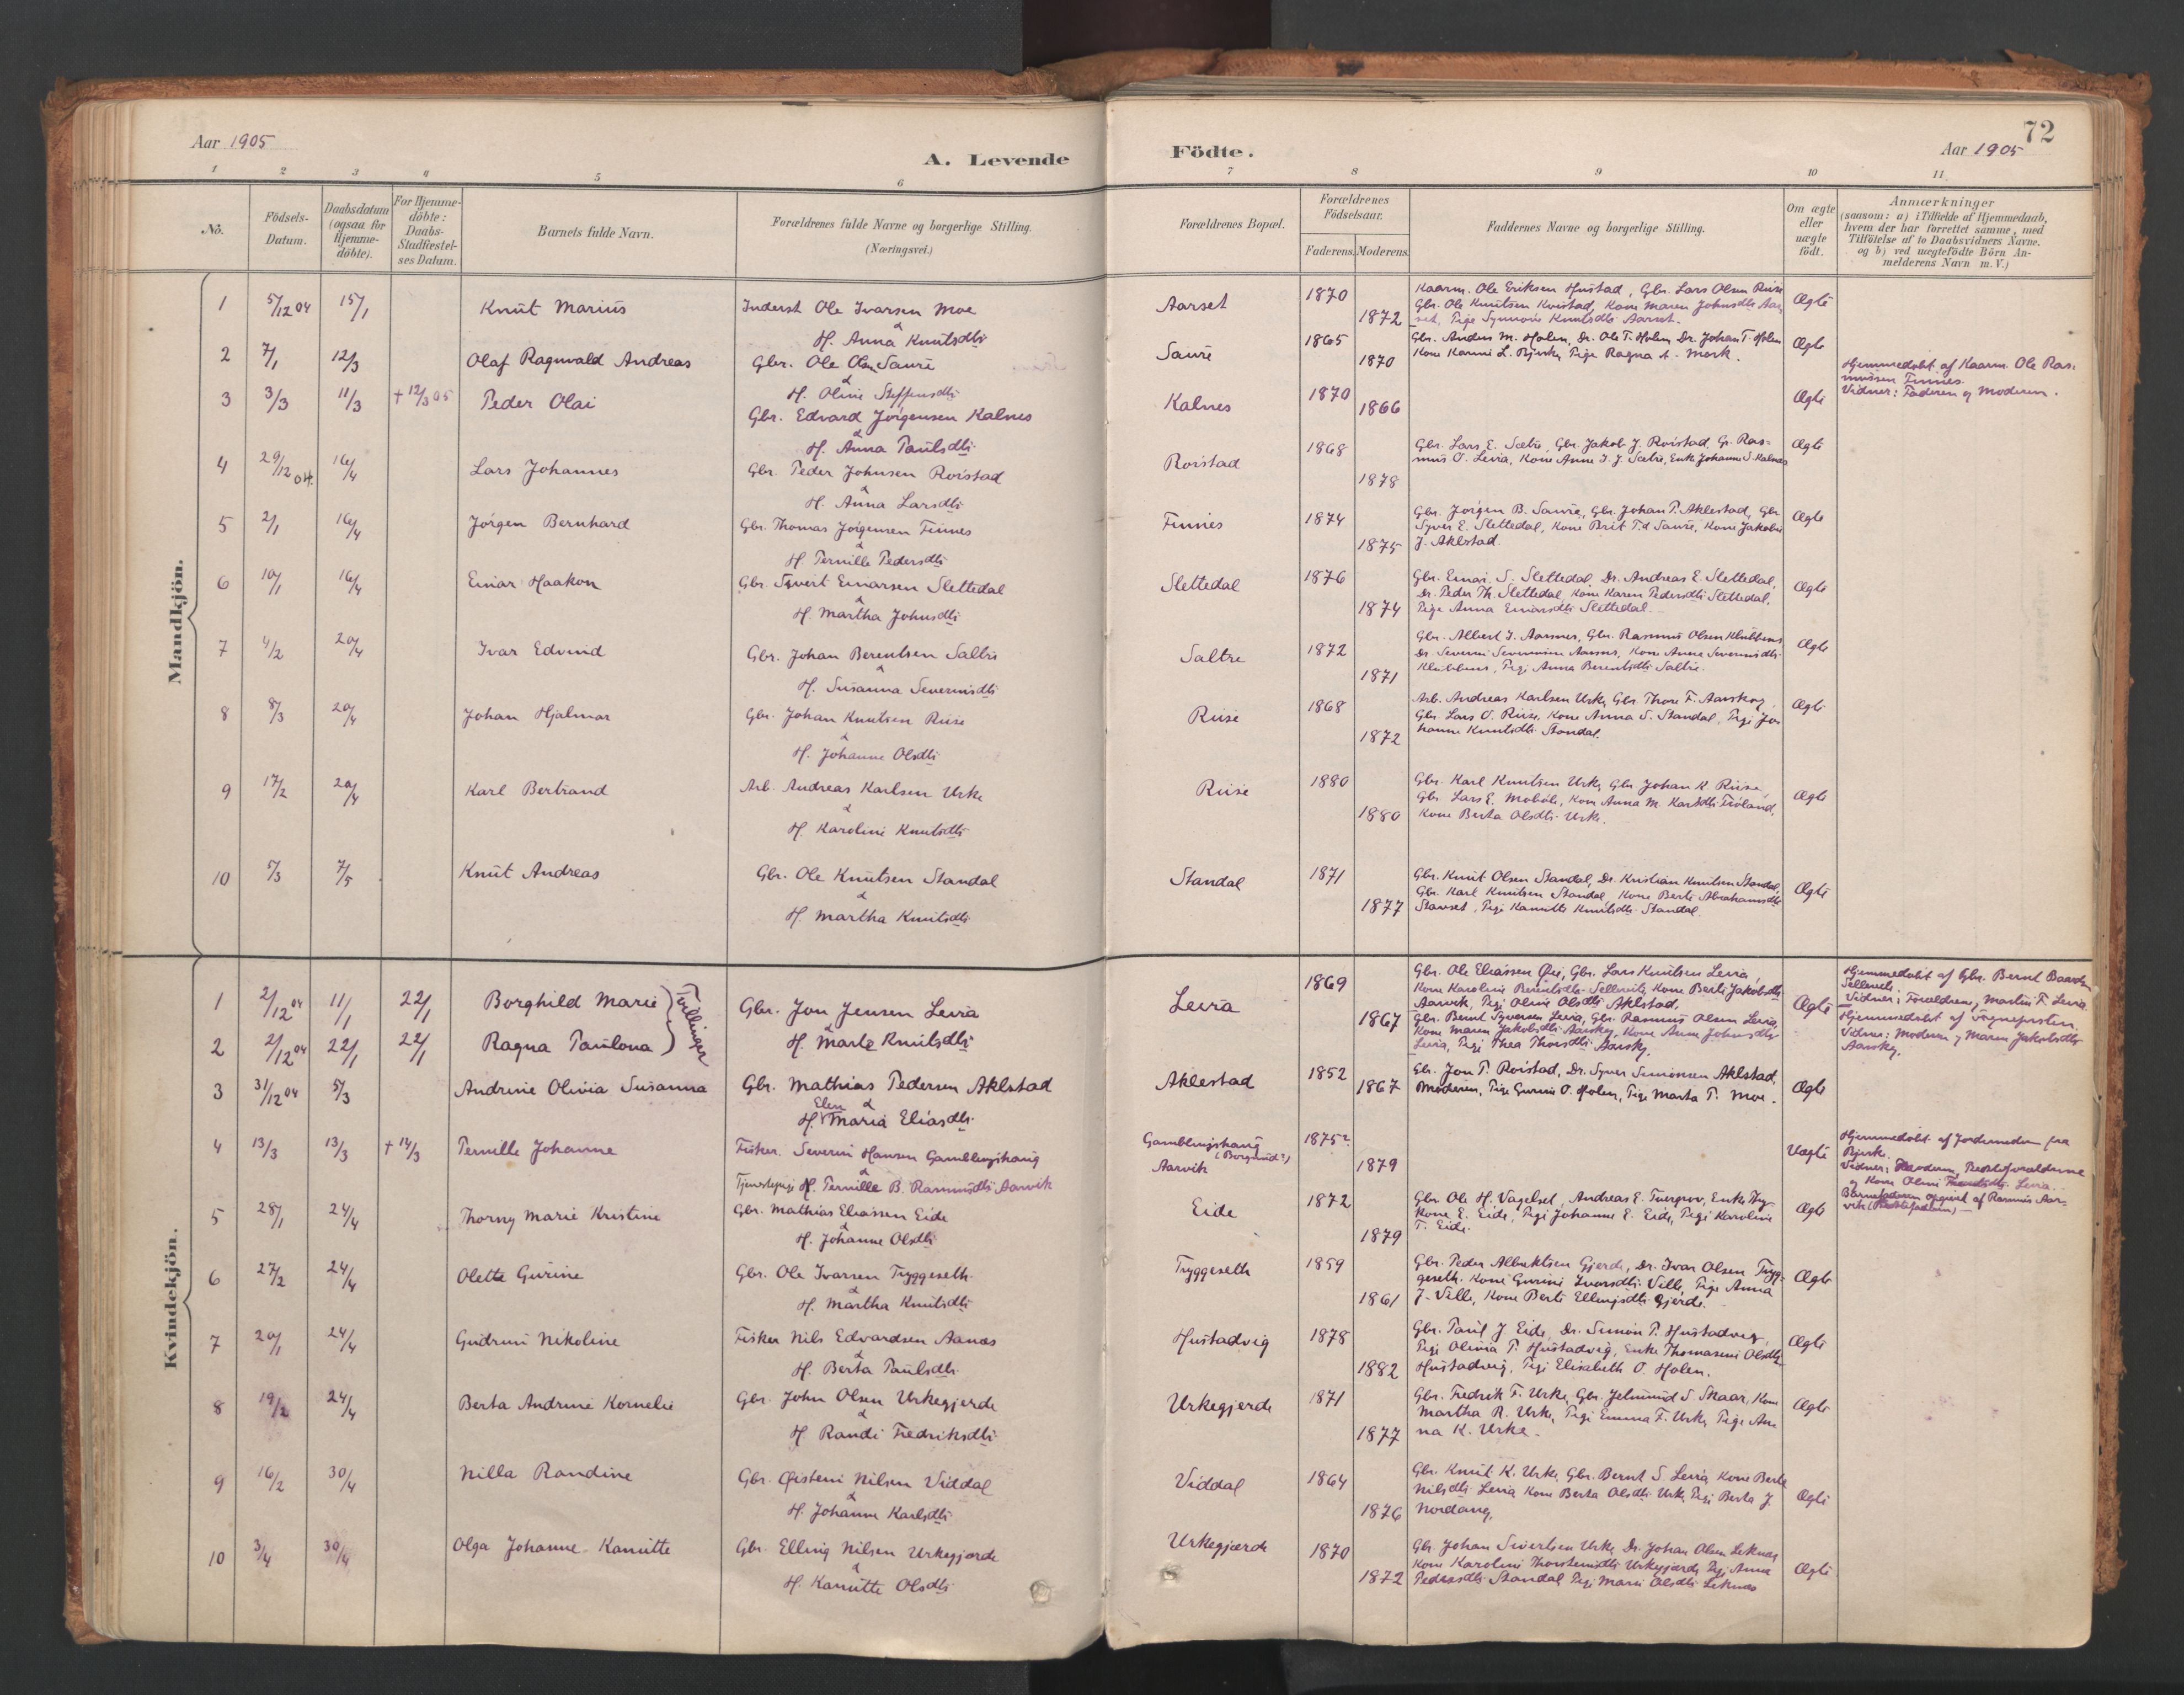 72
Aar 1905
A. Levende
Födte.
Aar 1905
1 2 3 4 5 6 7 8 9 10 11
No.
Födsels-Datum.
Daabsdatum (ogsaa for Hjemme-döbte).
For Hjemme-döbte: Daabs-Stadfæstel-ses Datum.
Barnets fulde Navn.
Forældrenes fulde Navne og borgerlige Stilling. (Næringsvei.)
Forældrenes Bopæl.
Forældrenes Födselsaar.
Faderens. Moderens.
Faddernes Navne og borgerlige Stilling.
Om ægte eller uægte födt.
Anmærkninger
(saasom: a) i Tilfælde af Hjemmedaab,
hvem der har forrettet samme, med
Tilföielse af to Daabsvidners Navne.
og b) ved uægtefödte Börn An-
melderens Navn m. V.)
Mandkjön.
1 5/12 04 15/1 Knut Marius Inderst Ole Ivarsen Moe & H. Anna Knutsdtr Aarset 1870 1872 Ægte
Kaarm. Ole Eriksen Hustad, Gbr. Lars Olsen Riise
Gbr. Ole Knutsen Kvistad, Kone Maren Johnsdtr Aar-
set, Pige Synnøve Knutsdtr Aarset.
2 7/1 12/3 Olaf Ragnvald Andreas Gbr. Ole Olsen Saure & H. Oline Steffensdtr Saure 1865 1870 Ægte
Gbr. Anders M. Holen, Dr. Ole T. Holen Dr. Johan T. Holen
Kone Hanna L. Bjerke, Pige Ragna A. Mork.
3 3/3 11/3 + 12/3 05 Peder Olai Gbr. Edvard Jörgensen Kalnes & H. Anna Paulsdtr Kalnes 1870 1866 Ægte
Hjemmedøbt af Kaarm. Ole Ras-
mussen Finnes.
Vidner: Faderen og Moderen.
4 29/12 04. 16/4 Lars Johannes Gbr. Peder Johnsen Roistad & H. Anna Larsdtr Roistad 1868 1878 Ægte
Gbr. Lars E. Sætre, Gbr. Jakob J. Roistad, G. Ras-
mus O. Leira, Kone Anne I. J. Sætre, Enke Johanne S. Kalnes
5 2/1 16/4 Jörgen Bernhard Gbr. Thomas Jörgensen Finnes & H. Pernille Pedersdtr Finnes 1874 1875 Ægte
Gbr. Jörgen B. Saure, Gbr. Johan P. Aklestad, Gbr
Syver E. Slettedal, Kone Brit T.d Saure, Kone Jakobie
J. Aklestad.
6 10/1 16/4 Einar Haakon Gbr. Syvert Einarsen Slettedal & H. Martha Johnsdtr Slettedal 1876 1874 Ægte
Gbr. Einar S. Slettedal, Dr. Andreas E. Slettedal,
Dr. Peder Th. Slettedal, Kone Karen Pedersdtr Slettedal,
Pige Anna Einarsdtr Slettedal.
7 4/2 20/4 Ivar Edvind Gbr. Johan Berentsen Saltre & H. Susanna Severinsdtr Saltre 1872 1871 Ægte
Gbr. Albert I. Aarsnes, Gbr. Rasmus Olsen Klubbenes
Dr. Severin Severinsen Aarsnes, Kone Anna Severinsdtr
Klubbenes, Pige Anna Berentsdtr Saltre.
8 8/3 20/4 Johan Hjalmar Gbr. Johan Knutsen Riise & H. Johanne Olsdtr Riise 1868 1872 Ægte
Arb. Andreas Karlsen Urke, Gbr Thore F. Aarskog,
Gbr. Lars O. Riise, Kone Anna S. Standal, Pige Jo-
hanne Knutsdtr Standal.
9 17/2 20/4 Karl Bertrand Arb. Andreas Karlsen Urke & H. Karoline Knutsdtr Riise 1880 1880 Ægte
Gbr. Karl Knutsen Urke, Gbr Johan K. Riise,
Gbr. Lars E. Moböle, Kone Anna M. Karlsdtr Fröland,
Kone Berta Olsdtr Urke.
10 5/3 7/5 Knut Andreas Gbr. Ole Knutsen Standal & H. Martha Knutsdtr Standal 1871 1877 Ægte
Gbr. Knut Olsen Standal, Dr. Kristian Knutsen Standal,
Gbr. Karl Knutsen Standal, Kone Berte Abrahamsdtr
Stavset, Pige Kanutte Knutsdtr Standal.
Kvindekjön.
1 2/12 04 11/1 22/1 Borghild Marie
2 2/12 04 22/1 22/1 Ragna Paulona
Tvillinger
Gbr. Jon Jensen Leira & H. Marte Knutsdtr Leira 1869 1867 Ægte
Gbr. Ole Eliassen Øie, Gbr. Lars Knutsen Leira,
Kone Karoline Berentsdtr Sellevik, Kone Berte Jakobsdtr
Aarvik, Pige Oline Olsdtr Aklestad.
Gbr. Bernt Syversen Leira, Gbr. Rasmus Olsen Leira,
Kone Maren Jakobsdtr Aarskog, Kone Anne Johnsdtr
Leira, Pige Thea Thorsdtr Aarskog.
Hjemmedøbt af Gbr. Bernt Baardsen
Sellevik.
Vidner: Forældrene, Martin F. Leira.
Hjemmedøbt af Sognepresten.
Vidner: Moderen og Maren Jakobsdtr
Aarskog.
3 31/12 04 5/3 Andrine Olivia Susanna Gbr. Mathias Pedersen Aklstad & H. Elen Maria Eliasdtr. Aklestad 1852 1867 Ægte
Gbr. Jon P. Roistad, Dr. Syver Simonsen Aklstad,
Moderen, Pige Gurine O. Holen, Pige Marta P. Moe.
4 13/3 13/3 + 14/3 Pernille Johanne Fisker Severin Hansen Gamblingshaug & Tjenestepige Pernille B. Rasmusdtr Aarvik Gamblingshaug (Borgund?) Aarvik 1875? 1879 Uægte
Hjemmedøbt af Jordemoder fra
Bjerke.
Vidner: Moderen, Bedsteforældrene
og Kone Oline Leira.
Barnefaderen opgivet af Rasmus Aar-
vik (Bedstefaderen)
5 28/1 24/4 Thorny Marie Kristine Gbr. Mathias Eliassen Eide & H. Johanne Olsdtr Eide 1872 1879 Ægte
Gbr Ole H. Vagelset, Andreas E. Tuegrov, Enke
Kone E. Eide, Pige Johanne E. Eide, Pige Karoline
T. Eide.
6 27/2 24/4 Olette Gurine Gbr. Ole Ivarsen Tryggeseth & H. Martha Knutsdtr Tryggeseth 1859 1861 Ægte
Gbr. Peder Albriktsen Gjerde, Dr. Ivar Olsen Tryg-
geseth. Kone Gurine Ivarsdtr Velle, Pige Anna
J. Velle, Kone Berte Ellingsdtr Gjerde.
7 20/1 24/4 Gudrun Nikoline Fisker Nils Edvardsen Aanas & H. Berta Paulsdtr Hustadvig 1878 1882 Ægte
Gbr. Paul J Eide, Dr. Simon P. Hustadvig,
Pige Olivia P. Hustadvig, Enke Thomasine Olsdtr
Hustadvig, Pige Elisabeth O. Holen.
8 19/2 24/4 Berta Andrine Kornelie Gbr. John Olsen Urkegjerde & H. Randi Fredriksdtr Urkegjerde 1871 1877 Ægte
Gbr. Fredrik F. Urke, Gbr. Jelmund S Skaar, Kone
Martha R. Urke, Pige Emma F. Urke, Pige An-
na K. Urke.
9 16/2 30/4 Nilla Randine Gbr. Øistein Nilsen Viddal & H. Johanne Karlsdtr Viddal 1864 1876 Ægte
Gbr. Knut K. Urke, Gbr. Bernt S. Leira, Kone Berte
Nilsdtr Leira Kone Berta Olsdtr Urke, Pige Berta J.
Nordang.
10 3/4 30/4 Olga Johanne Kanutte Gbr. Elling Nilsen Urkegjerde & H. Kanutte Olsdtr Urkegjerde 1870 1872 Ægte
Gbr. Johan Sivertsen Urke, Dr. Johan Olsen Leknes,
Kone Karoline Thorsteinsdtr Urkegjerde, Pige Anna
Pedersdtr Standal Pige Marie Olsdtr Leknes